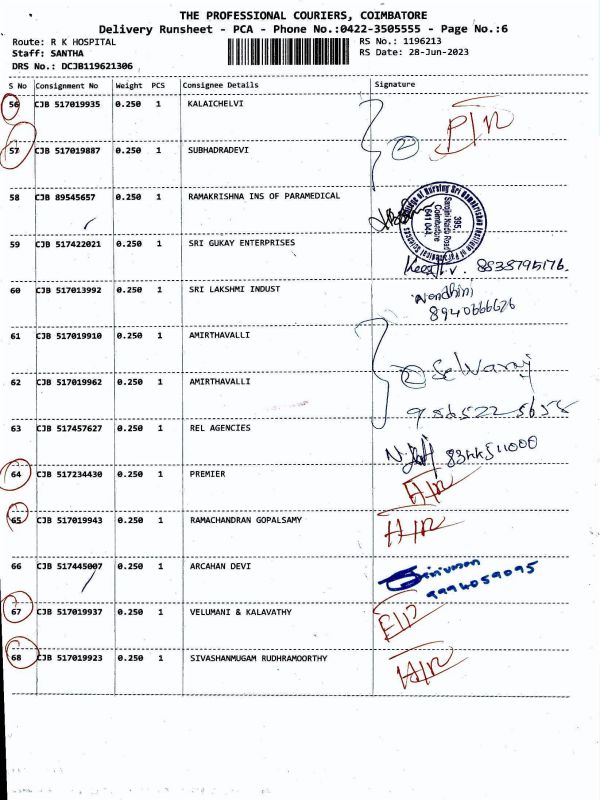 THE PROFESSIONAL COURIERS, COIMBATORE
Delivery Runsheet - PCA - Phone No.:0422-3505555 - Page No.:6
Route: R K HOSPITAL RS No.: 1196213
Staff: SANTHA RS Date: 28-Jun-2023
DRS No.: DCJB119621306
S No Consignment No Weight PCS Consignee Details Signature
56 CJB 517019935 0.250 1 KALAICHELVI
57 CJB 517019887 0.250 1 SUBHADRADEVI 2
58 CJB 89545657 0.250 1 RAMAKRISHNA INS OF PARAMEDICAL
395,
Sarojini Naidu Road
Coimbatore
641 044.
59 CJB 517422021 0.250 1 SRI GUKAY ENTERPRISES
8838795176.
60 CJB 517013992 0.250 1 SRI LAKSHMI INDUST Nandhini
8940666626
61 CJB 517019910 0.250 1 AMIRTHAVALLI
62 CJB 517019962 0.250 1 AMIRTHAVALLI 2 Selvaraj
9865225658
63 CJB 517457627 0.250 1 REL AGENCIES
64 CJB 517234430 0.250 1 PREMIER
65 CJB 517019943 0.250 1 RAMACHANDRAN GOPALSAMY
66 CJB 517445007 0.250 1 ARCAHAN DEVI
9994059095
67 CJB 517019937 0.250 1 VELUMANI & KALAVATHY
68 CJB 517019923 0.250 1 SIVASHANMUGAM RUDHRAMOORTHY